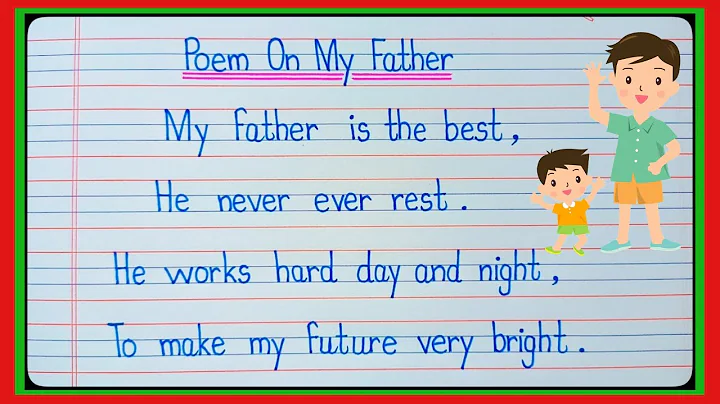 Poem On My Father
My father is the best,
He never ever rest.
He works hard day and night,
To make my future very bright.